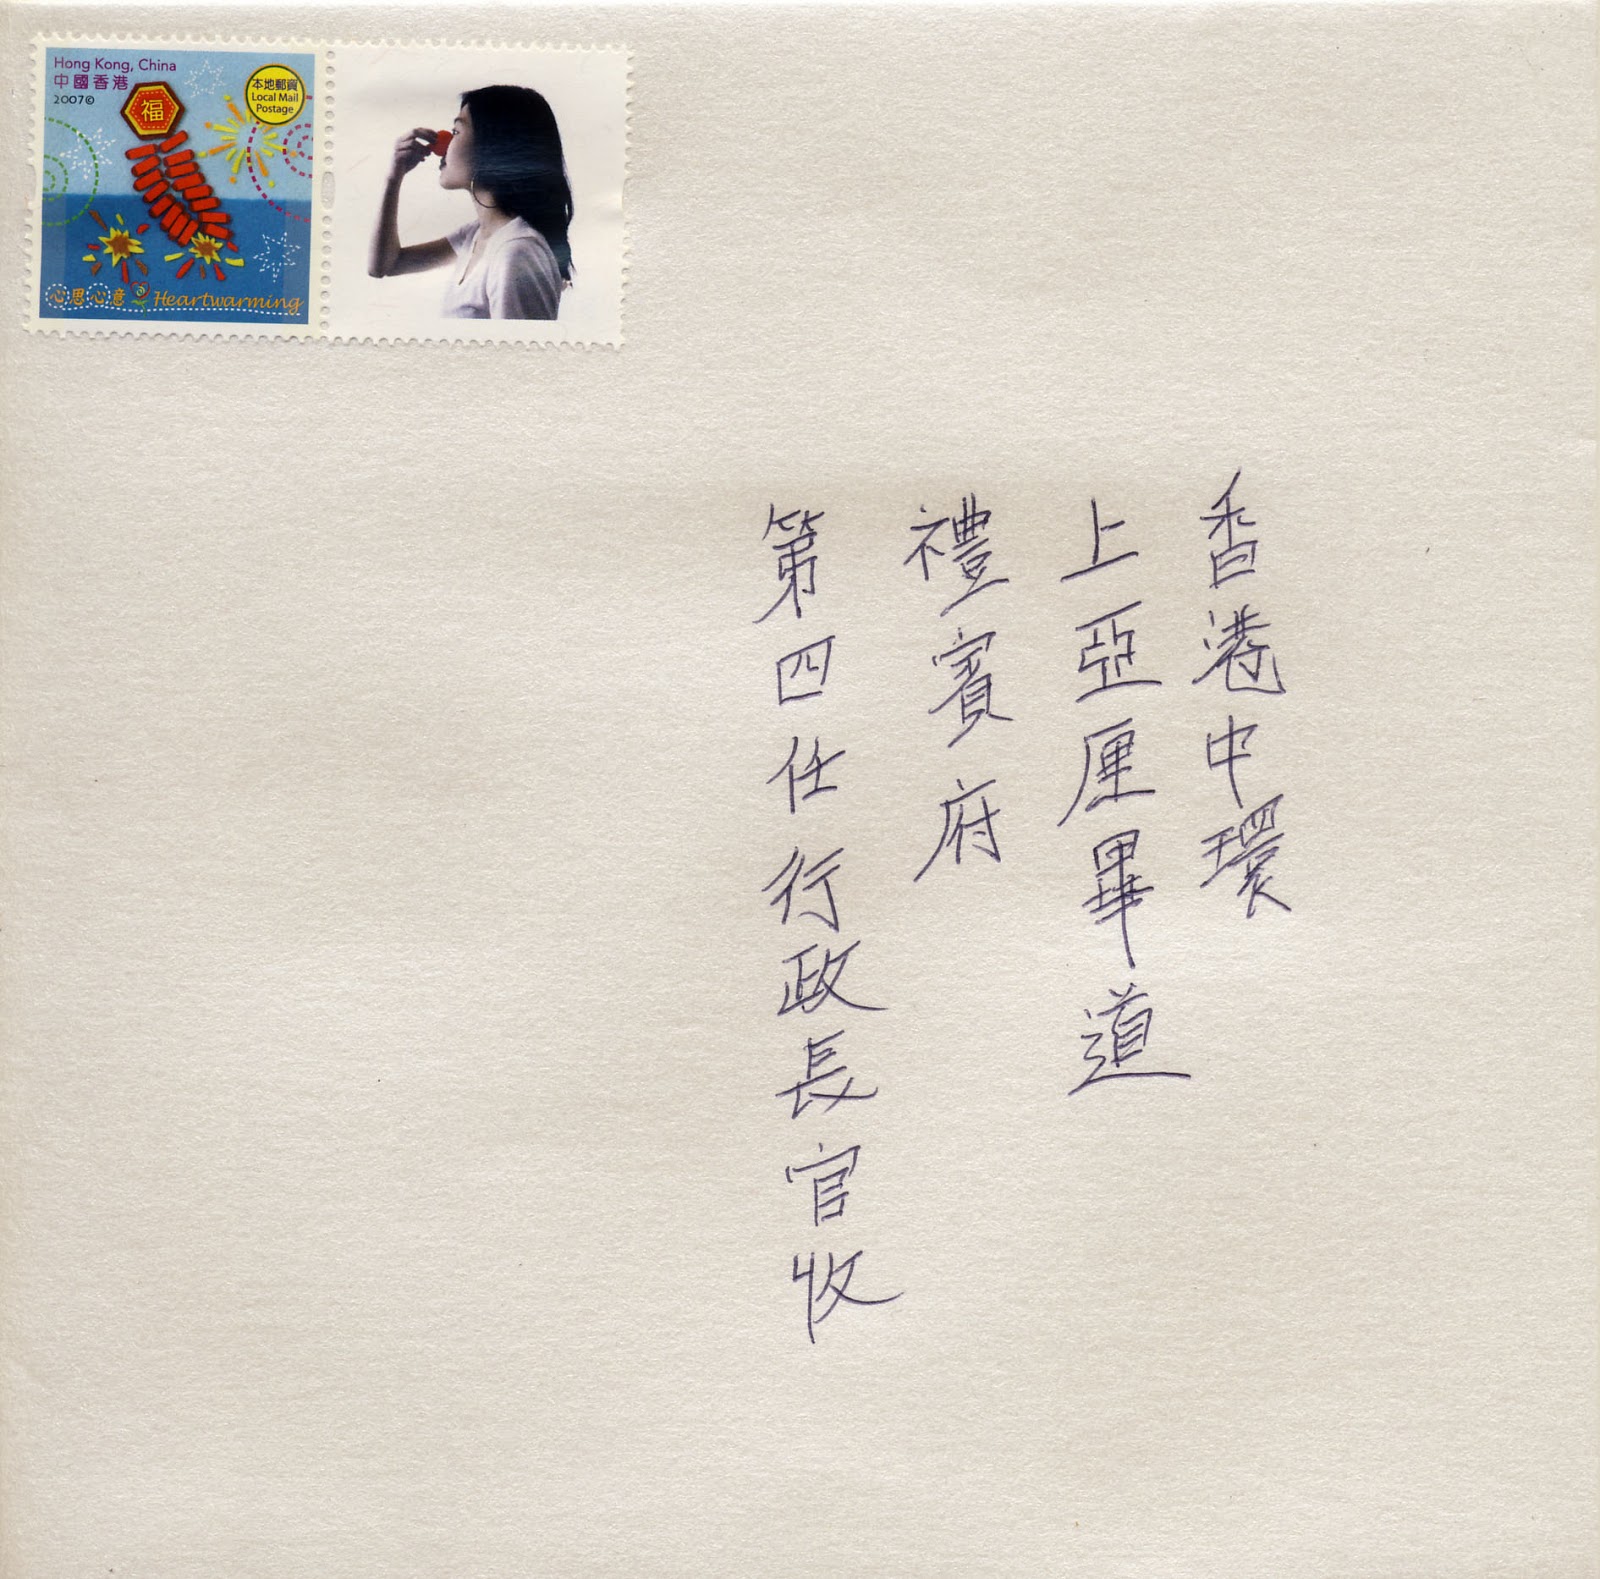 Hong Kong, China
中國香港
2007©
福
本地郵資
Local Mail
Postage
心思心意 Heartwarming
香港中環
上亞厘畢道
禮賓府
第四任行政長官收